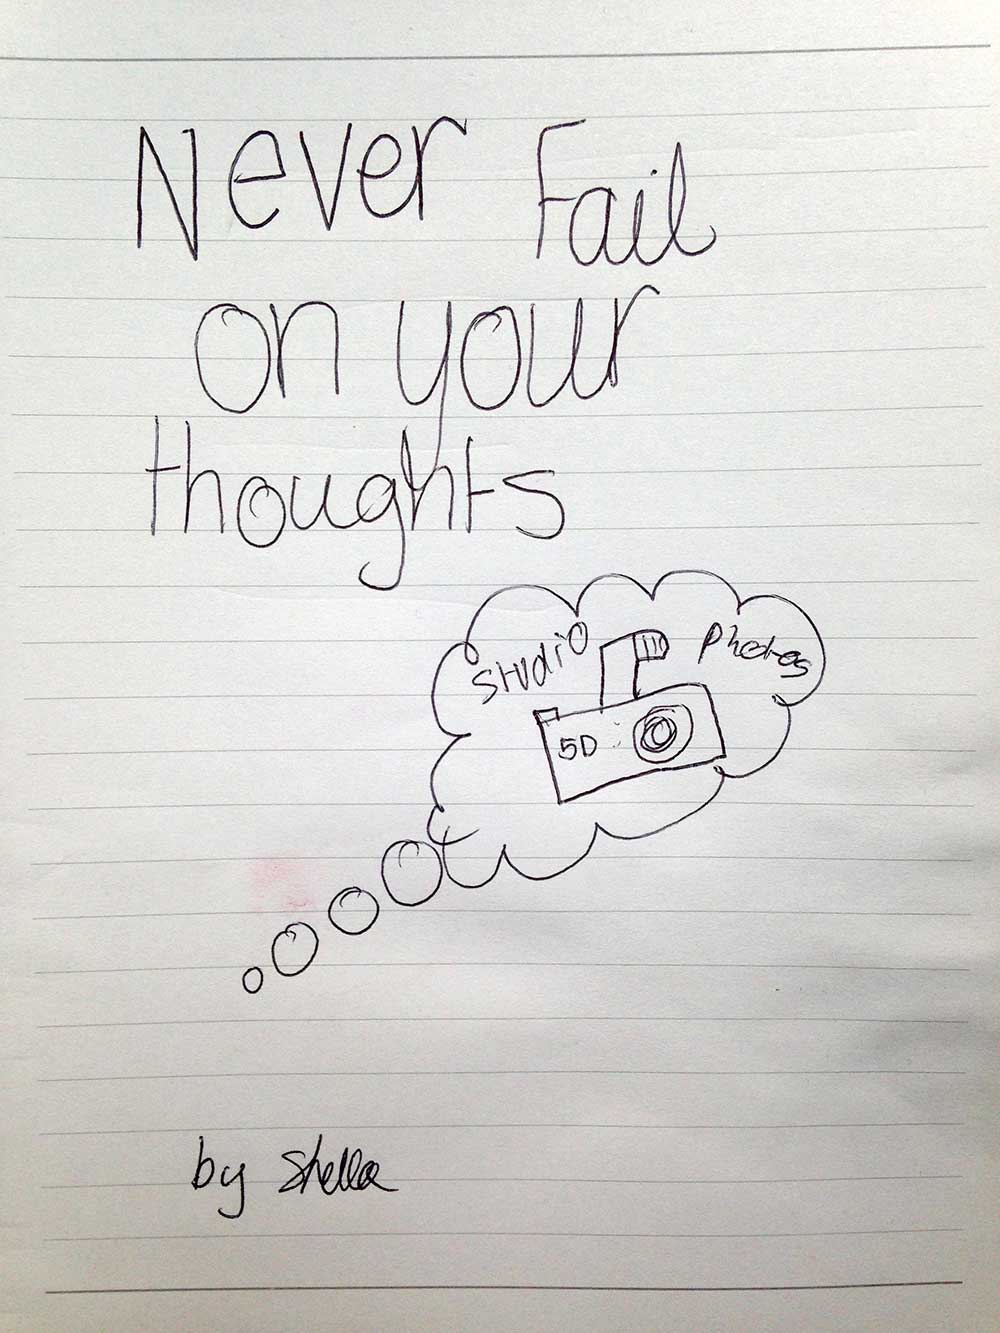 Never Fail
on your
thoughts
studio photos
5D
by Shella